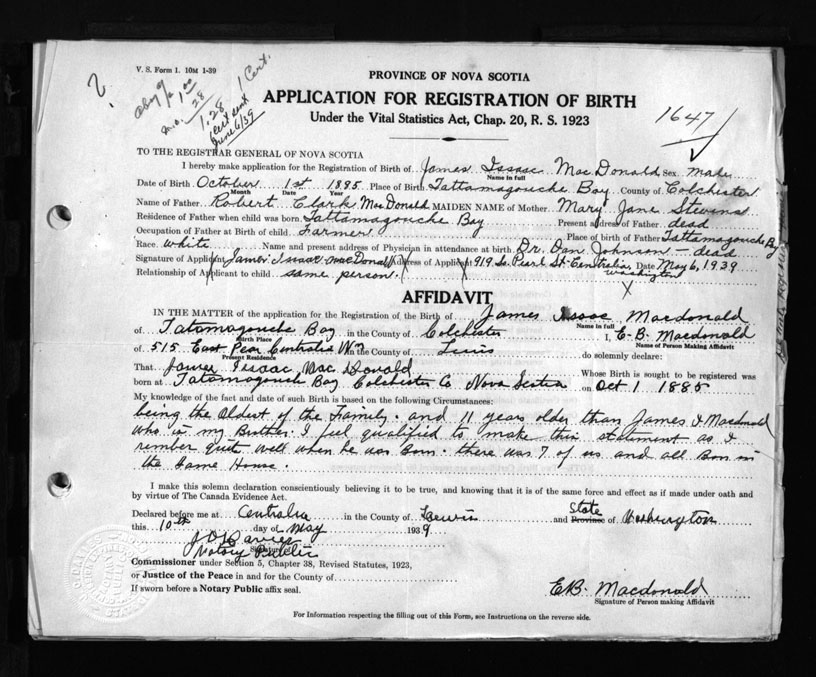 V. S. Form 1. 10M 1-39
1 Cert.
1.00
m.o. .28
1.28
cert sent
June 6/39
PROVINCE OF NOVA SCOTIA
APPLICATION FOR REGISTRATION OF BIRTH
Under the Vital Statistics Act, Chap. 20, R. S. 1923
1647
TO THE REGISTRAR GENERAL OF NOVA SCOTIA
I hereby make application for the Registration of Birth of James Issac MacDonald Sex male
Name in full
Date of Birth October 1st 1895 Place of Birth Tattamagouche Bay County of Colchester
Month Date Year
Name of Father Robert Clark MacDonald MAIDEN NAME of Mother Mary Jane Stevens
Residence of Father when child was born Tattamagouche Bay Present address of Father dead
Occupation of Father at Birth of child Farmer Place of birth of Father Tattamagouche Bay
Race white Name and present address of Physician in attendance at birth Dr. Dan Johnson - dead
Signature of Applicant James Isaac MacDonald Address of Applicant 919 So. Pearl St. Centralia Date May 6, 1939
Washington
Relationship of Applicant to child same person.
X
AFFIDAVIT
IN THE MATTER of the application for the Registration of the Birth of James Isaac Macdonald
Name in full
of Tatamagouche Bay in the County of Colchester I, E-B- Macdonald
Birth Place Name of Person Making Affidavit
of 515 East Pear Centralia Wn in the County of Lewis do solemnly declare:
Present Residence
That James Issaac MacDonald Whose Birth is sought to be registered was
born at Tatamagouch Bay Colchester Co Nova Scotia on Oct 1 1885
My knowledge of the fact and date of such Birth is based on the following Circumstances:
being the Oldest of the Family. and 11 years older than James I Macdonald
who is my Brother. I feel qualified to make this statement as I
rember quite well when he was Born. there was 7 of us and all Born in
the Same House.
I make this solemn declaration conscientiously believing it to be true, and knowing that it is of the same force and effect as if made under oath and
by virtue of The Canada Evidence Act.
Declared before me at Centralia in the County of Lewis and State Province of Washington
this 10th day of May 1939
J D Davies
Notary Public
Signature of
Commissioner under Section 5, Chapter 38, Revised Statutes, 1923,
or Justice of the Peace in and for the County of
If sworn before a Notary Public affix seal.
EB- Macdonald
Signature of Person making Affidavit
For Information respecting the filling out of this Form, see Instructions on the reverse side.